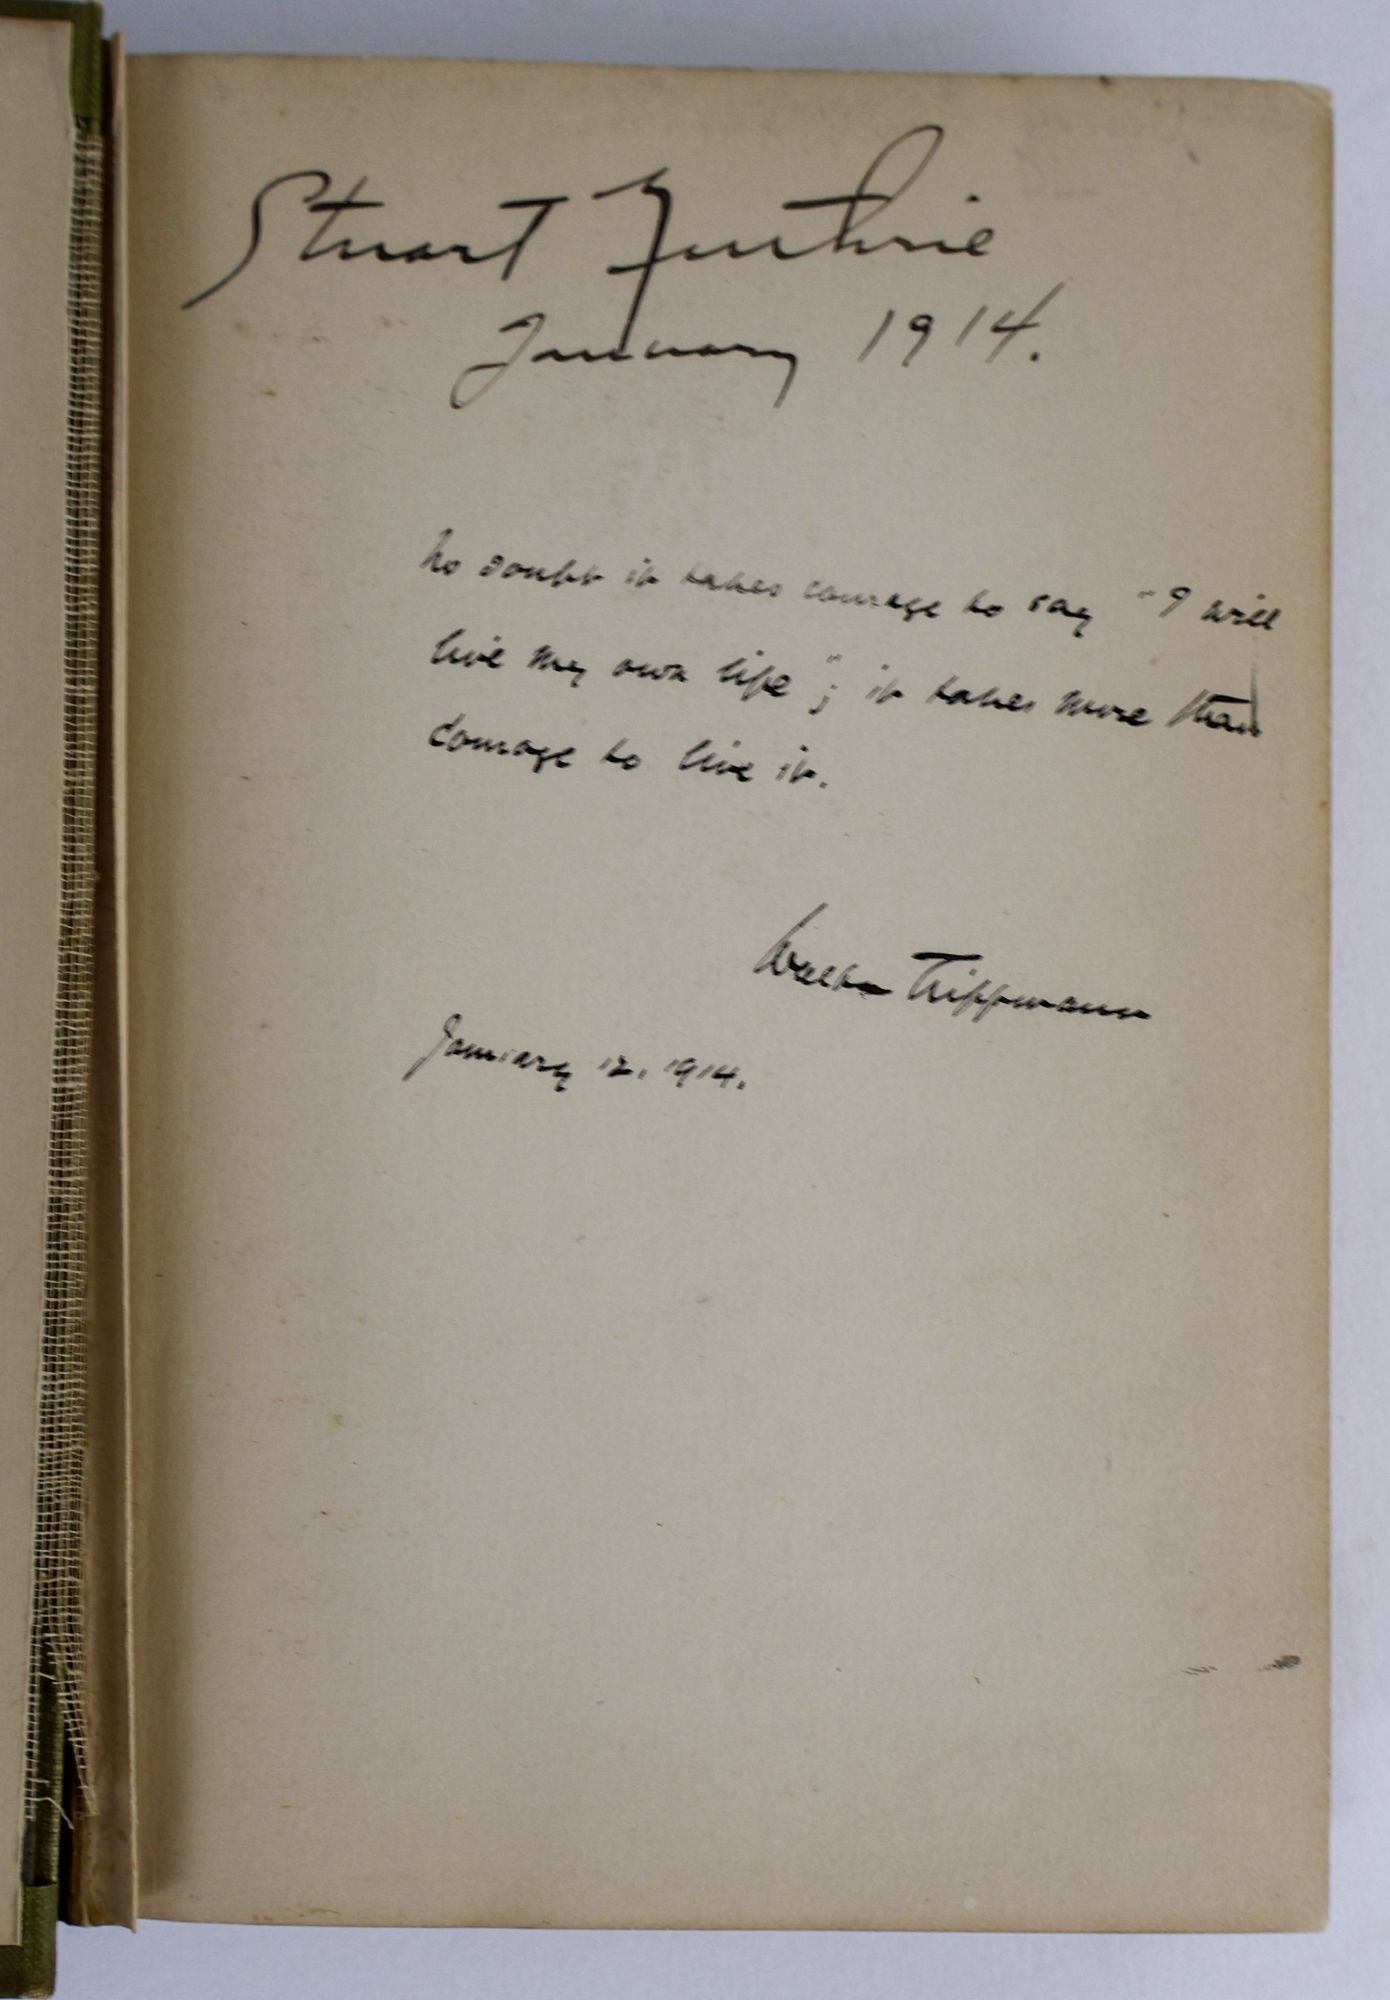 Stuart Guthrie
January 1914.
No doubt it takes courage to say "I will
live my own life"; it takes more than
courage to live it.
Walter Lippmann
January 12. 1914.